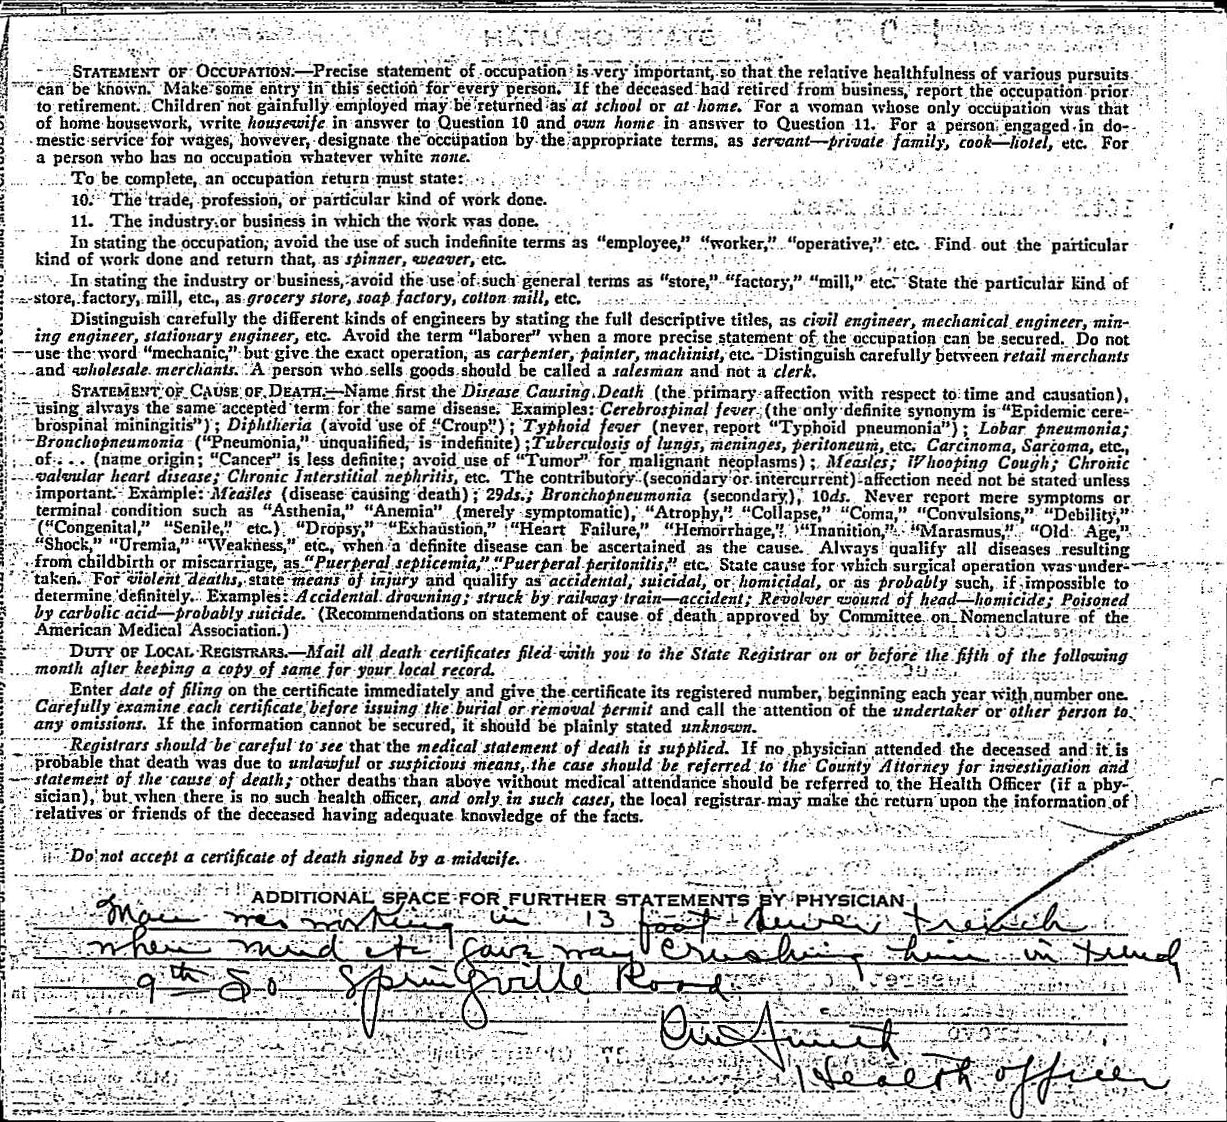 STATE OF UTAH
STATEMENT OF OCCUPATION.—Precise statement of occupation is very important, so that the relative healthfulness of various pursuits
can be known. Make some entry in this section for every person. If the deceased had retired from business, report the occupation prior
to retirement. Children not gainfully employed may be returned as at school or at home. For a woman whose only occupation was that
of home housework, write housewife in answer to Question 10 and own home in answer to Question 11. For a person engaged in do-
mestic service for wages, however, designate the occupation by the appropriate terms, as servant—private family, cook—hotel, etc. For
a person who has no occupation whatever white none.
To be complete, an occupation return must state:
10. The trade, profession, or particular kind of work done.
11. The industry or business in which the work was done.
In stating the occupation, avoid the use of such indefinite terms as "employee," "worker," "operative," etc. Find out the particular
kind of work done and return that, as spinner, weaver, etc.
In stating the industry or business, avoid the use of such general terms as "store," "factory," "mill," etc. State the particular kind of
store, factory, mill, etc., as grocery store, soap factory, cotton mill, etc.
Distinguish carefully the different kinds of engineers by stating the full descriptive titles, as civil engineer, mechanical engineer, min-
ing engineer, stationary engineer, etc. Avoid the term "laborer" when a more precise statement of the occupation can be secured. Do not
use the word "mechanic," but give the exact operation, as carpenter, painter, machinist, etc. Distinguish carefully between retail merchants
and wholesale merchants. A person who sells goods should be called a salesman and not a clerk.
STATEMENT OF CAUSE OF DEATH.—Name first the Disease Causing Death (the primary affection with respect to time and causation),
using always the same accepted term for the same disease. Examples: Cerebrospinal fever (the only definite synonym is "Epidemic cere-
brospinal miningitis"); Diphtheria (avoid use of "Croup"); Typhoid fever (never report "Typhoid pneumonia"); Lobar pneumonia;
Bronchopneumonia ("Pneumonia," unqualified, is indefinite); Tuberculosis of lungs, meninges, peritoneum, etc. Carcinoma, Sarcoma, etc.,
of . . . (name origin; "Cancer" is less definite; avoid use of "Tumor" for malignant neoplasms); Measles; Whooping Cough; Chronic
valvular heart disease; Chronic Interstitial nephritis, etc. The contributory (secondary or intercurrent) affection need not be stated unless
important. Example: Measles (disease causing death); 29ds.; Bronchopneumonia (secondary), 10ds. Never report mere symptoms or
terminal condition such as "Asthenia," "Anemia" (merely symptomatic), "Atrophy," "Collapse," "Coma," "Convulsions," "Debility,"
("Congenital," "Senile," etc.) "Dropsy," "Exhaustion," "Heart Failure," "Hemorrhage," "Inanition," "Marasmus," "Old Age,"
"Shock," "Uremia," "Weakness," etc., when a definite disease can be ascertained as the cause. Always qualify all diseases resulting
from childbirth or miscarriage, as "Puerperal septicemia," "Puerperal peritonitis," etc. State cause for which surgical operation was under-
taken. For violent deaths, state means of injury and qualify as accidental, suicidal, or homicidal, or as probably such, if impossible to
determine definitely. Examples: Accidental drowning; struck by railway train—accident; Revolver wound of head—homicide; Poisoned
by carbolic acid—probably suicide. (Recommendations on statement of cause of death approved by Committee on Nomenclature of the
American Medical Association.)
DUTY OF LOCAL REGISTRARS.—Mail all death certificates filed with you to the State Registrar on or before the fifth of the following
month after keeping a copy of same for your local record.
Enter date of filing on the certificate immediately and give the certificate its registered number, beginning each year with number one.
Carefully examine each certificate before issuing the burial or removal permit and call the attention of the undertaker or other person to
any omissions. If the information cannot be secured, it should be plainly stated unknown.
Registrars should be careful to see that the medical statement of death is supplied. If no physician attended the deceased and it is
probable that death was due to unlawful or suspicious means, the case should be referred to the County Attorney for investigation and
statement of the cause of death; other deaths than above without medical attendance should be referred to the Health Officer (if a phy-
sician), but when there is no such health officer, and only in such cases, the local registrar may make the return upon the information of
relatives or friends of the deceased having adequate knowledge of the facts.
Do not accept a certificate of death signed by a midwife.
ADDITIONAL SPACE FOR FURTHER STATEMENTS BY PHYSICIAN
Man was working in 13 foot sewer trench
when mud etc gave way crushing him in trench
9th So Springville Road
Smith
Health officer